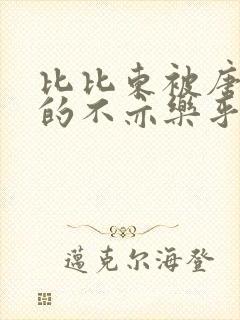 比比东被唐
的不亦乐乎
邁克尔海登